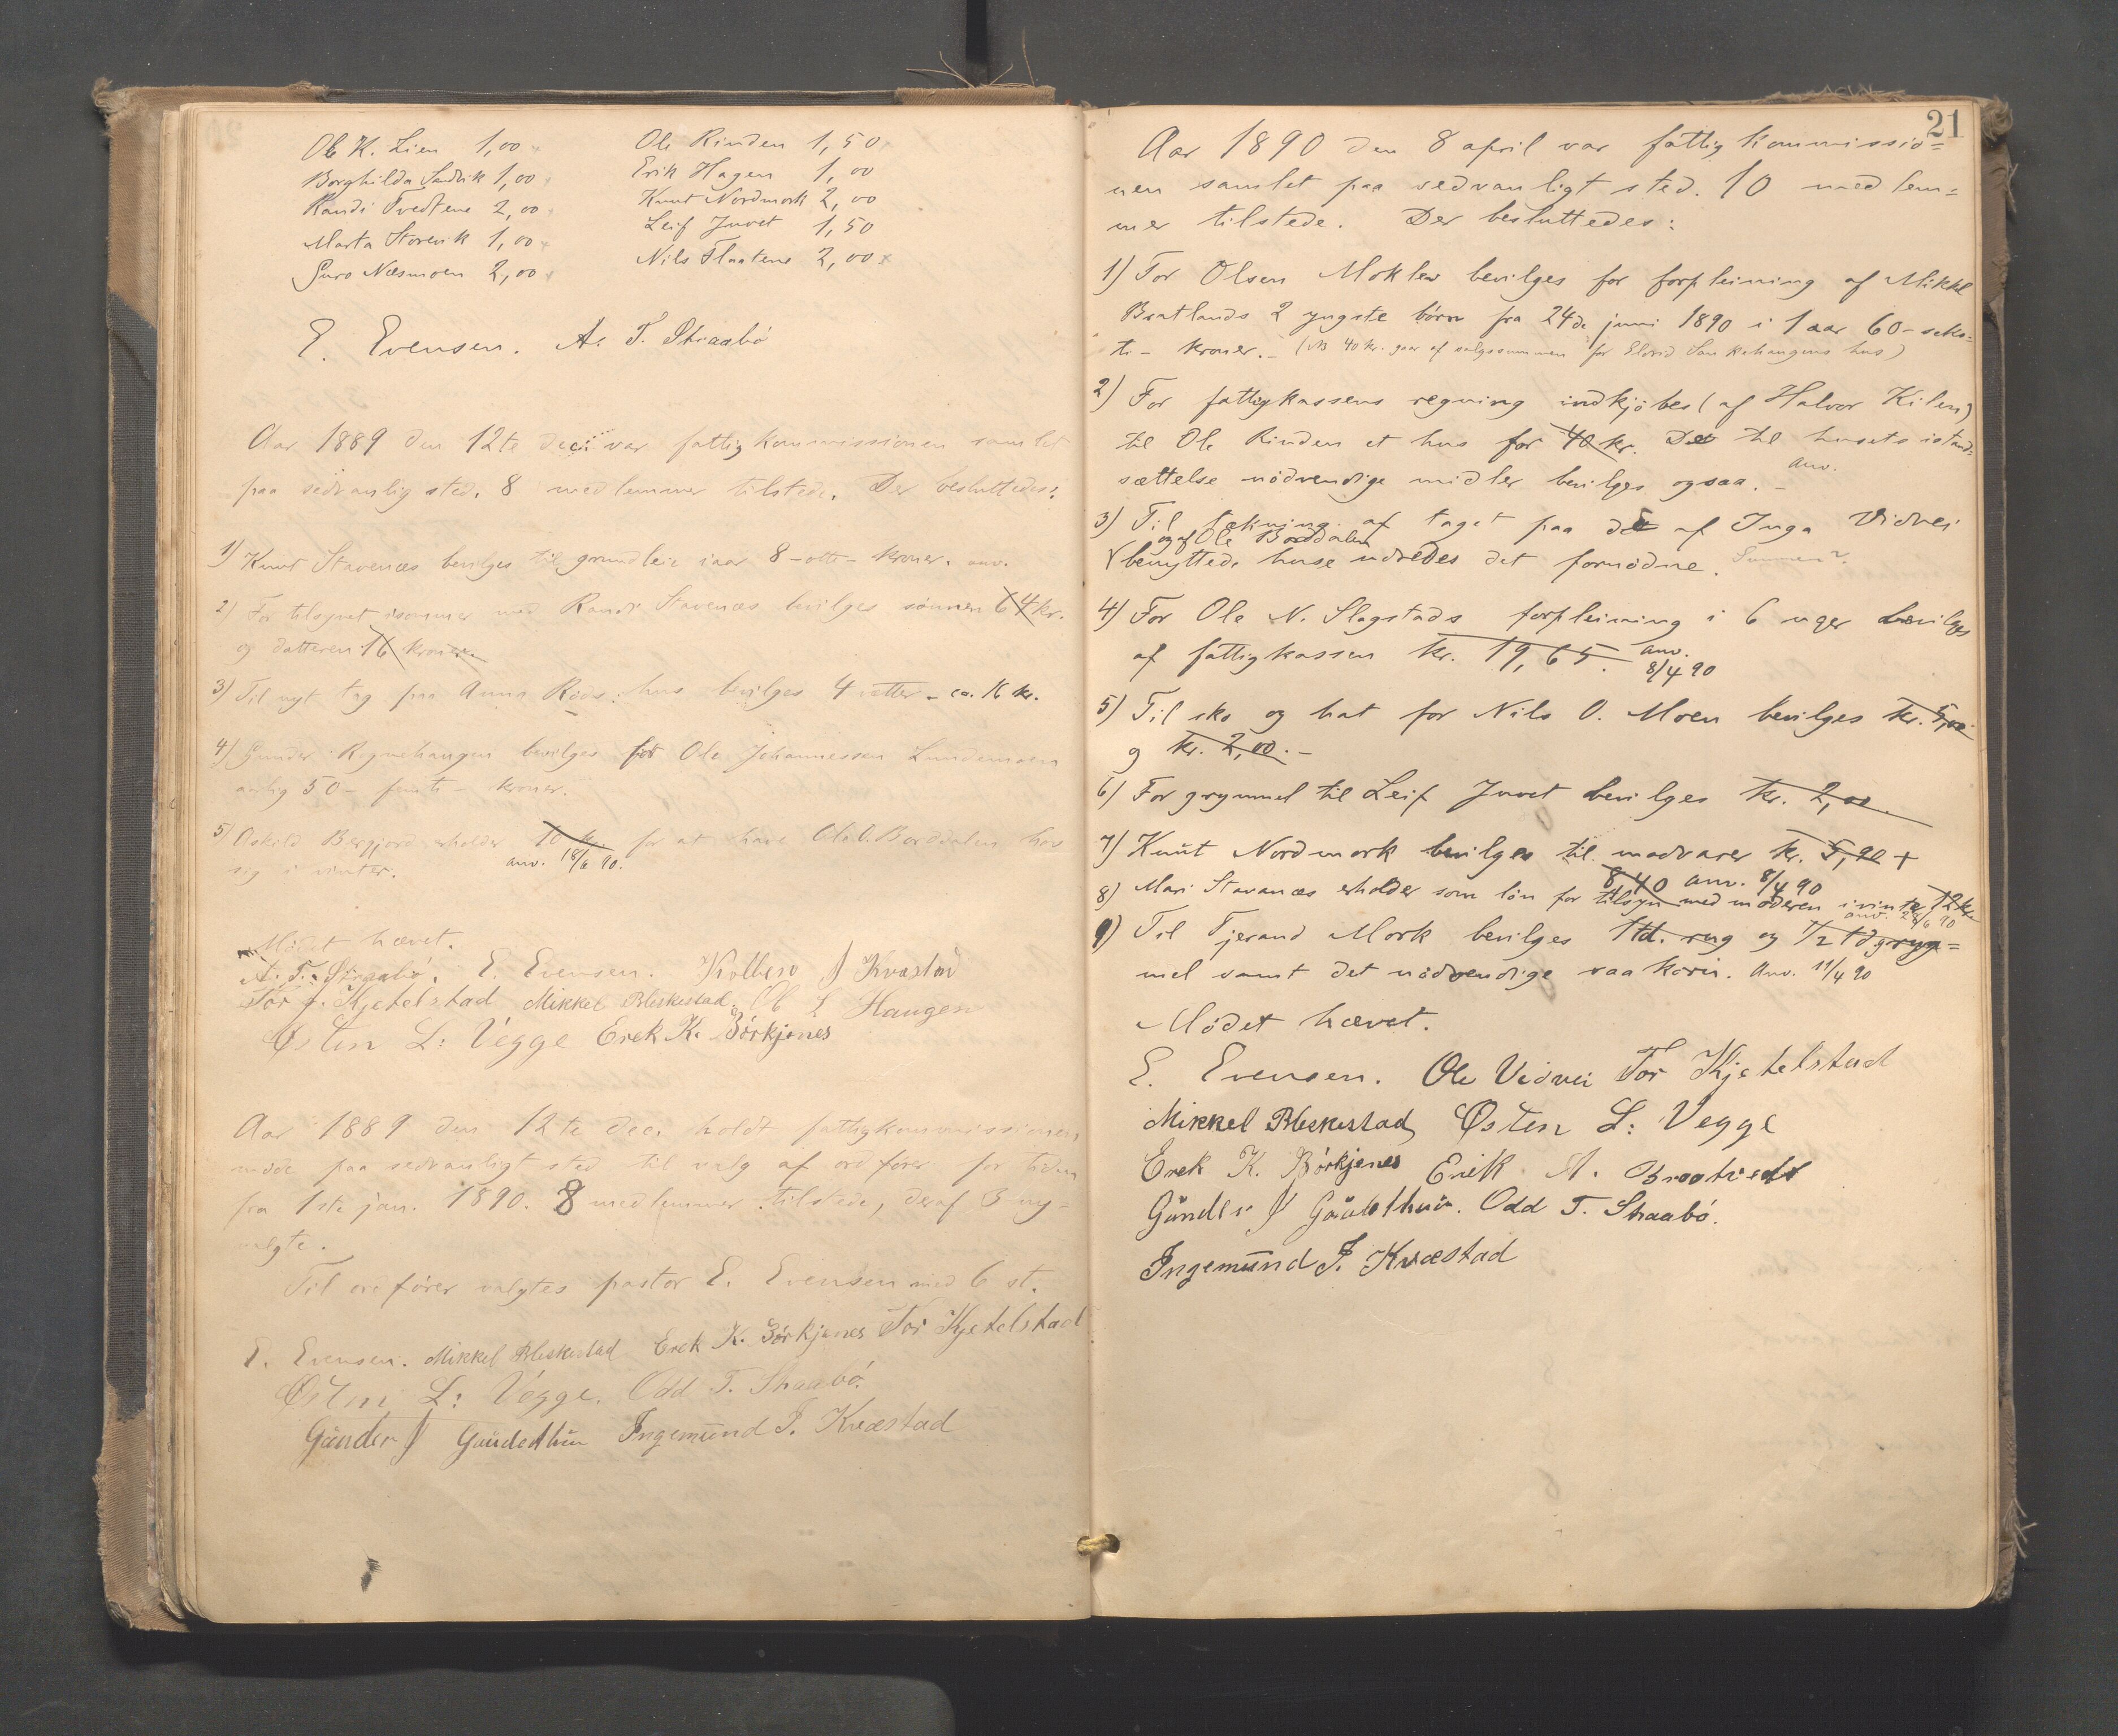 Ole K. Lien 1,00
Borghilda Sandvik 1,00
Randi Tvedtene 2,00
Marta Storevik 1,00
Guro Næsmoen 2,00
Ole Rinden 1,50
Erik Hagen 1,00
Knut Nordmork 2,00
Leif Juvet 1,50
Nils Flaatene 2,00
E. Evensen. A. T. Straabø
Aar 1889 den 12te dec: var fattigkommissionen samlet
paa sedvanlig sted. 8 medlemmer tilstede. Der besluttedes:
1) Knut Stavenæs bevilges til grundleie iaar 8 - otte - kroner. anv.
2) For tilsynet isommer med Randi Stavenæs bevilges sønnen 64 kr.
og datteren 16 kroner
3) Til nyt tag paa Anna Røds: hus bevilges 4 vetter - ca. 16 kr.
4) Gunder Rognehaugen bevilges for Ole Johannessen Lundemoen
aarlig 50 - femti - kroner.
5) Askild Bergjord erholder 10 kr. for at have Ole O. Borddalen hos
sig i vinter. anv. 18/6 90.
Mødet hævet.
A. T. Straabø. E. Evensen. Kolbein J Kvæstad
Tor J. Kjetelstad Mikkel Bleskestad. Ole L Haugen
Østen L: Végge Erek K. Børkjenes
Aar 1889 den 12te dec. holdt fattigkommissionen
møde paa sedvanligt sted til valg af ordfører for tiden
fra 1ste jan. 1890. 8 medlemmer tilstede, deraf 3 ny=
valgte.
Til ordfører valgtes pastor E. Evensen med 6 st.
E. Evensen. Mikkel Bleskestad Erek K. Børkjenes Tor Kjetelstad
Østen L: Végge. Odd T. Straabø.
Gunder J Gaudethun Ingemund J. Kvæstad
21
Aar 1890 den 8 april var fattigkommissio=
nen samlet paa sedvanligt sted. 10 medlem=
mer tilstede. Der besluttedes:
1) Tor Olsen Moklev bevilges for forpleining af Mikkel
Bratlands 2 yngste børn fra 24de juni 1890 i 1 aar 60 - seks=
ti - kroner. - (NB 40 kr. gaar af salgssummen for Elovid Sankehaugens hus)
2) For fattigkassens regning indkjøbes (af Halvor Kilen)
til Ole Rinden et hus for 40 kr. De til husets istand=
sættelse nødvendige midler bevilges ogsaa. - anv.
3) Til tækning af taget paa de af Inga Vidvei
og af Ole Borddalen
benyttede huse udredes det fornødne. Summen?
4) For Ole N. Slagstads forpleining i 6 uger bevilges
af fattigkassen kr. 19,65. anv. 8/4 90
5) Til sko og hat for Nils O. Moen bevilges kr. 5,00
og kr. 2,00. -
6) For grynmel til Leif Juvet bevilges kr. 2,00
7) Knut Nordmork bevilges til madvarer kr. 5,90 +
8 40 anv. 8/4 90
8) Mari Stavanæs erholder som løn for tilsyn med moderen i vinter 12 kr
anv. 28/6 90
9) Til Tjerand Mork bevilges 1 td. rug og 1/2 td gryn=
mel samt det nødvendige saakorn. Anv. 11/4 90
Mødet hævet.
E. Evensen. Ole Vidvei Tor Kjetelstad
Mikkel Bleskestad Østen L: Vegge
Erek K. Børkjenes Erik A. Brattveit
Gunder J Gaudethun. Odd T. Straabø.
Ingemund J. Kvæstad